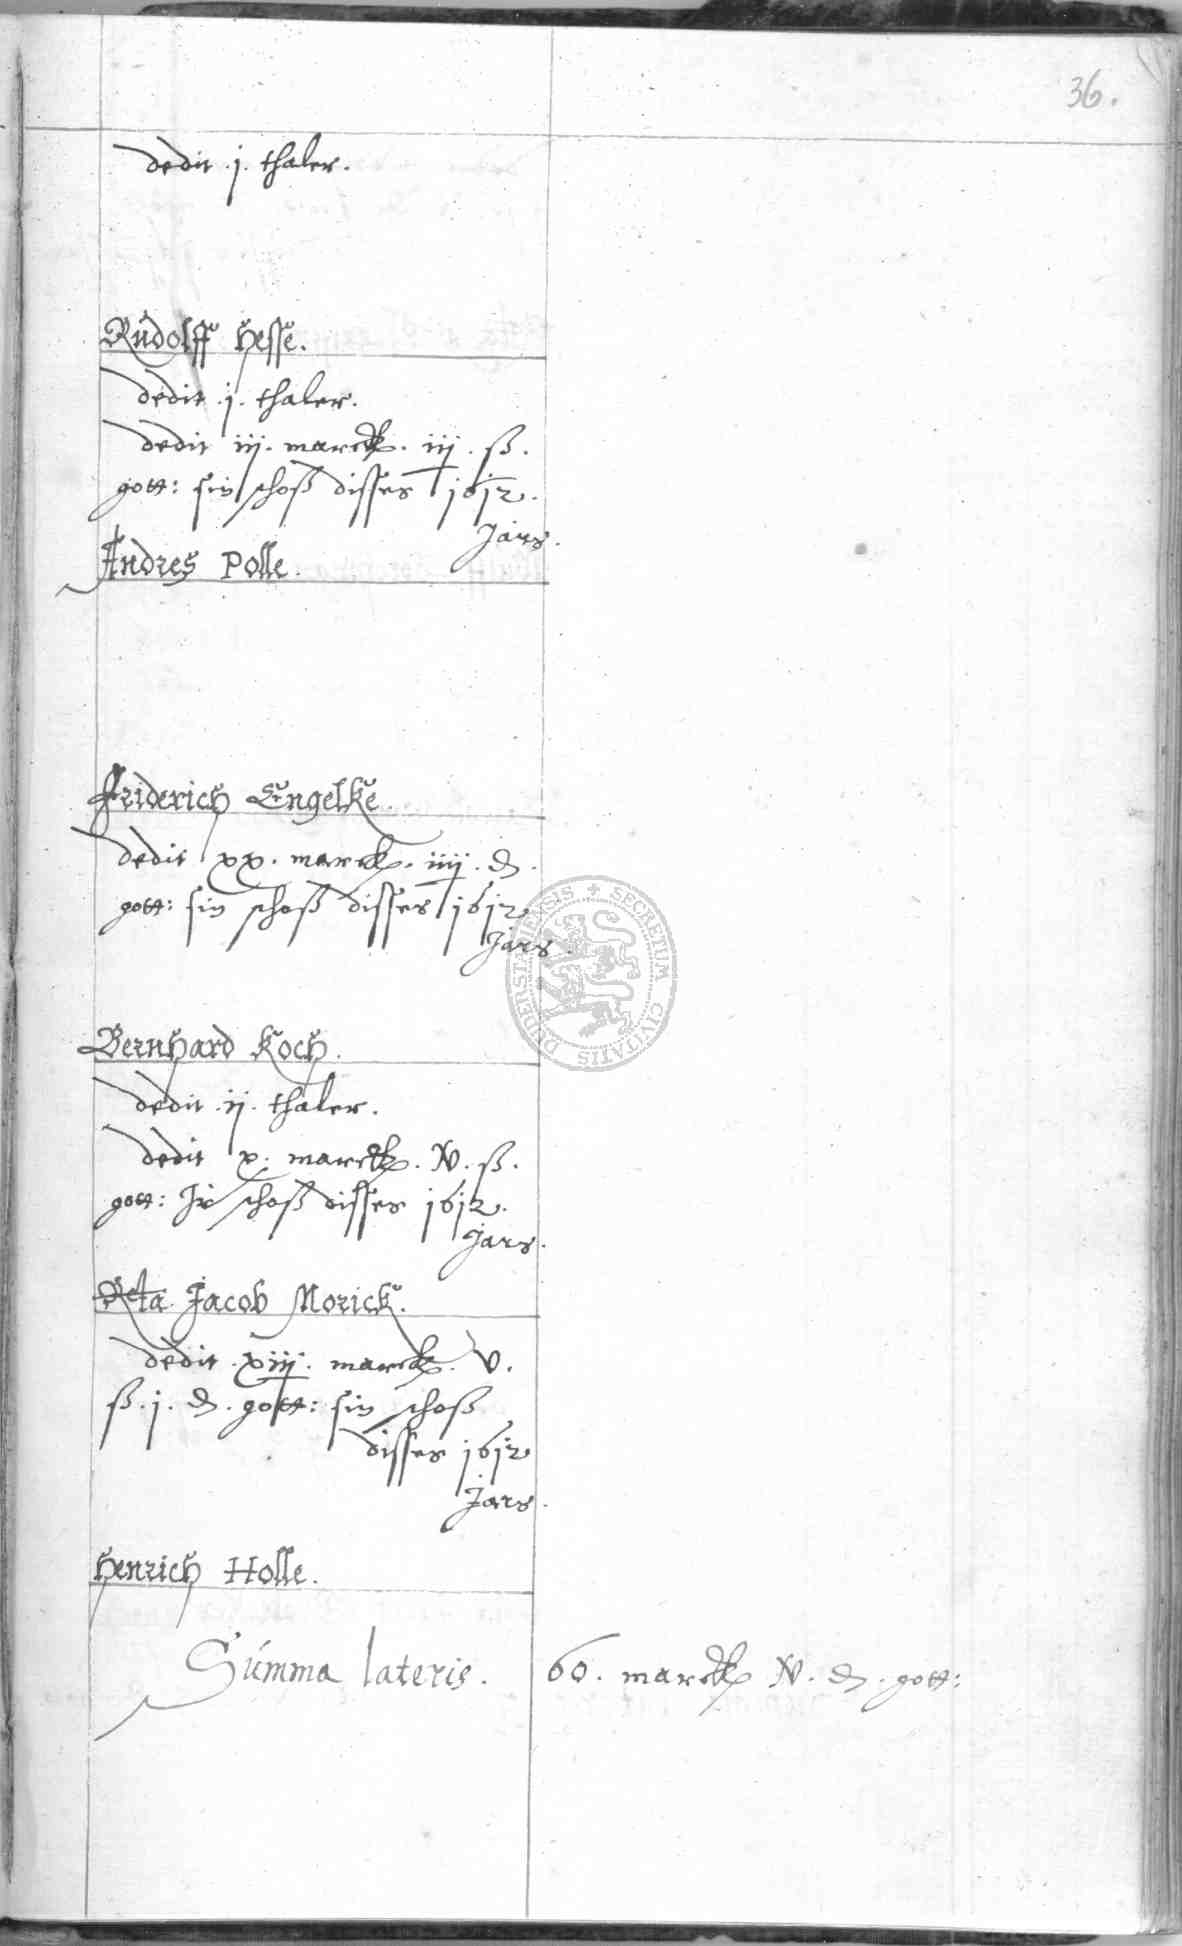 36.
dedit .j. thaler.
Rudolff Hesse.
dedit .j. thaler.
dedit iij. marck. iij. ß.
gott: sin schoß disses 1612.
Jars.
Andres Polle.
Friderich Engelke.
dedit xx. marck. iiij. d.
gott: sin schoß disses 1612
Jars.
Bernhard Koch.
dedit .ij. thaler.
dedit x. marck. ß.
gott: Ir schoß disses 1612.
Jars.
Rta Jacob Morick.
dedit .xiij. marck. v.
ß. j. d. gott: sin schoß
disses 1612
Jars.
Henrich Holle.
Summa lateris. 60. marck d. gott:
SECRETUM CIVITATIS DUDERSTADIENSIS